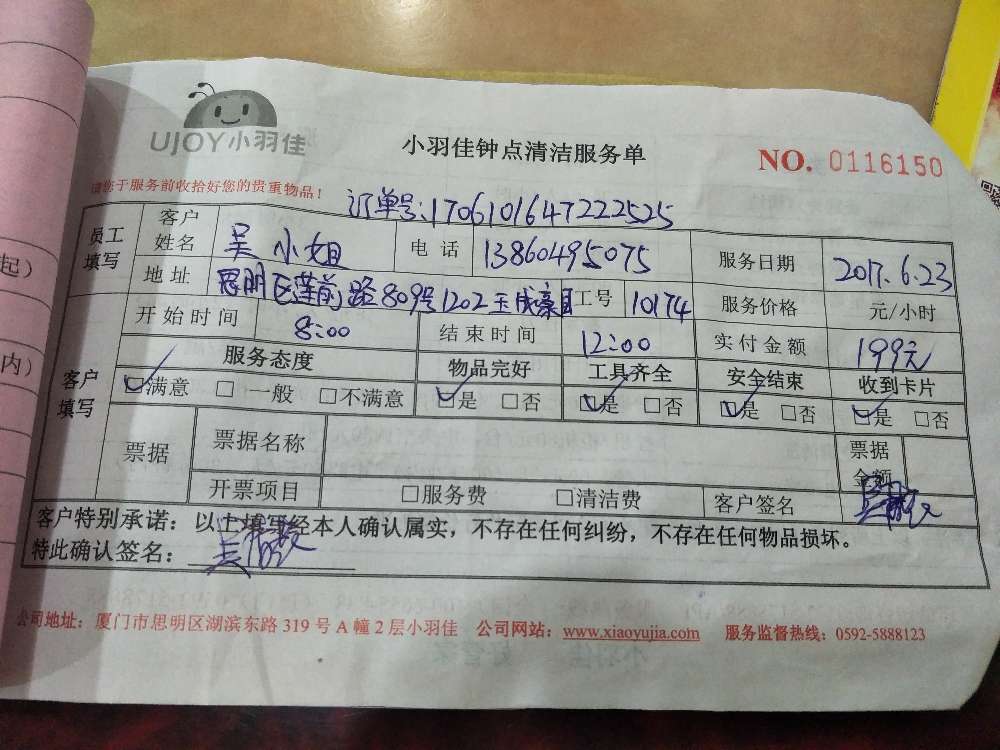 UJOY小羽佳
小羽佳钟点清洁服务单
NO. 0116150
请您于服务前收拾好您的贵重物品!
订单号:1706101647222525
员工填写 客户姓名 吴小姐 电话 13860495075 服务日期 2017.6.23
地址 思明区莲前路809号1202 工号 10174 服务价格 元/小时
客户填写 开始时间 8:00 结束时间 12:00 实付金额 199元
服务态度 物品完好 工具齐全 安全结束 收到卡片
☑满意 □一般 □不满意 ☑是 □否 ☑是 □否 ☑是 □否 ☑是 □否
票据 票据名称 票据金额
开票项目 □服务费 □清洁费 客户签名
客户特别承诺:以上填写经本人确认属实,不存在任何纠纷,不存在任何物品损坏。
特此确认签名:
公司地址:厦门市思明区湖滨东路319号A幢2层小羽佳 公司网站:www.xiaoyujia.com 服务监督热线:0592-5888123
起)
内)